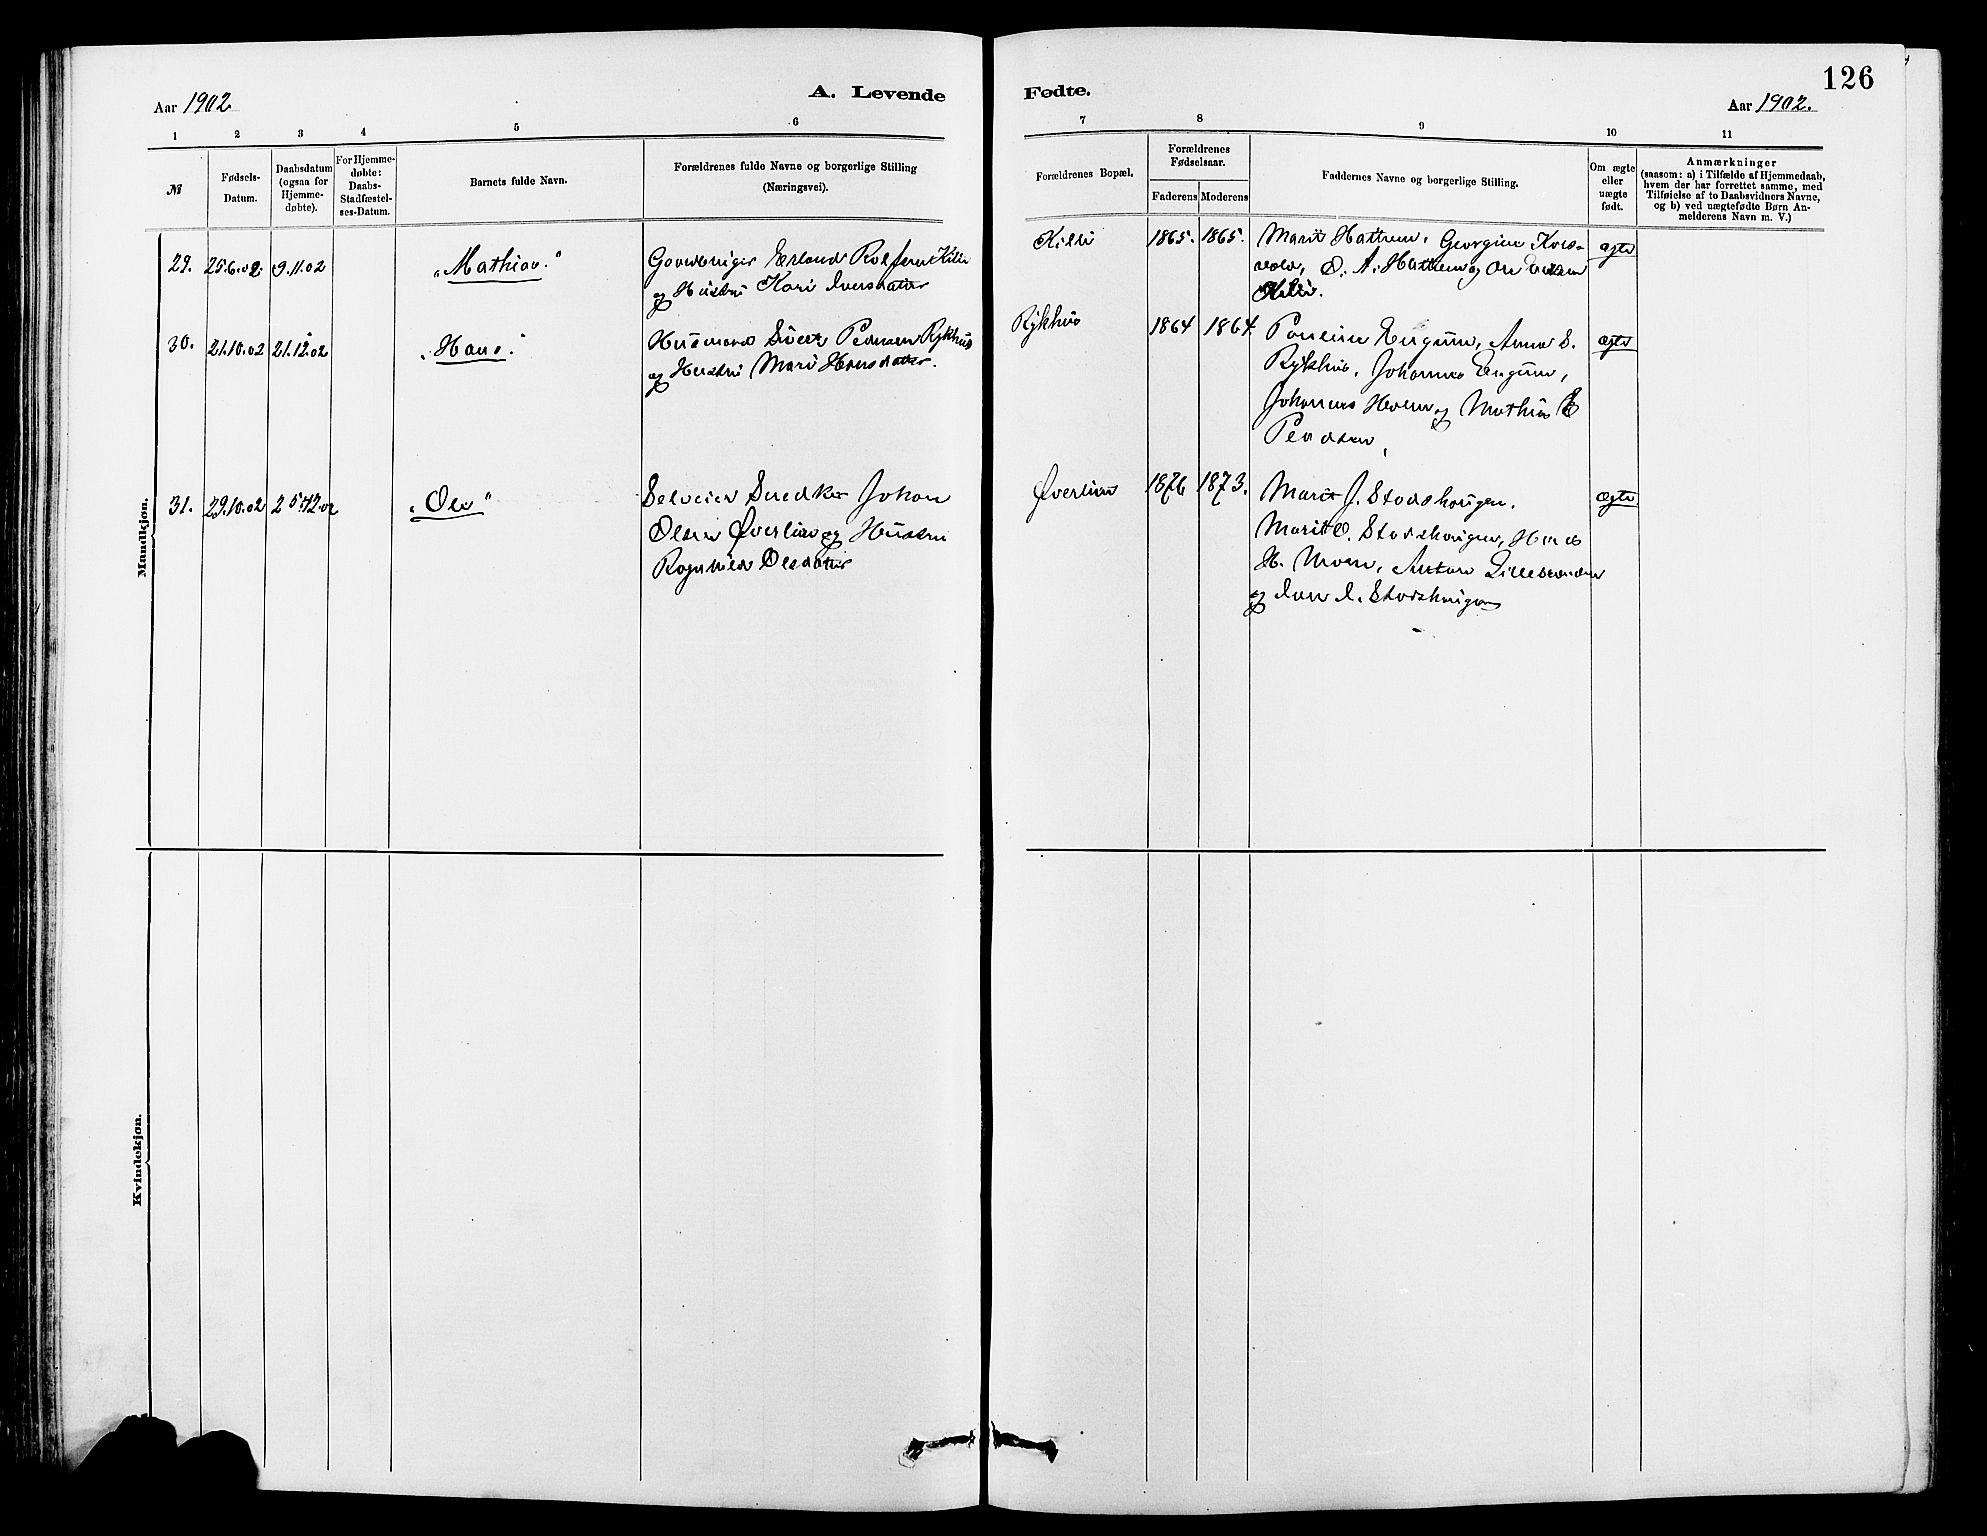 126
Aar 1902
A. Levende
Fødte.
Aar 1902.
1 2 3 4 5 6 7 8 9 10 11
№
Fødsels-
Datum.
Daabsdatum
(ogsaa for
Hjemme-
døbte).
For Hjemme-
døbte:
Daabs-
Stadfæstel-
ses-Datum.
Barnets fulde Navn.
Forældrenes fulde Navne og borgerlige Stilling
(Næringsvei).
Forældrenes Bopæl.
Forældrenes
Fødselsaar.
Faderens Moderens
Faddernes Navne og borgerlige Stilling.
Om ægte
eller
uægte
født.
Anmærkninger
(saasom: a) i Tilfælde af Hjemmedaab,
hvem der har forrettet samme, med
Tilføielse af to Daabsvidners Navne,
og b) ved uægtefødte Børn An-
melderens Navn m. V.)
Mandkjøn.
29. 25.6.02. 9.11.02 "Mathias."
Gaardbruger Erland Rolfsen Killi
og Hustru Kari Iversdatter
Killi 1865. 1865.
Marit Hattrem, Georgine Kors-
vold, O. A. Hattrem og
Killi.
ægte
30. 21.10.02 21.12.02 "Hans."
Husmand Sivert Pedersen Rykhus
og Hustru Mari Hansdatter.
Rykhus 1864 1864
Pauline Engum, Anne S.
Rykhus, Johannes Engum,
Johannes Hoem og Mathias
Pedersen,
ægte
31. 29.10.02 25.12.02 "Ole"
Selveier Snedker Johan
Olsen Øverlien og Hustru
Ragnhild Olsdatter
Øverlien 1876 1873.
Marit J. Storshaugen.
Marit O. Storshaugen, Hans
H. Moen, Anton
og Iver I. Storshaugen
ægte
Kvindekjøn.